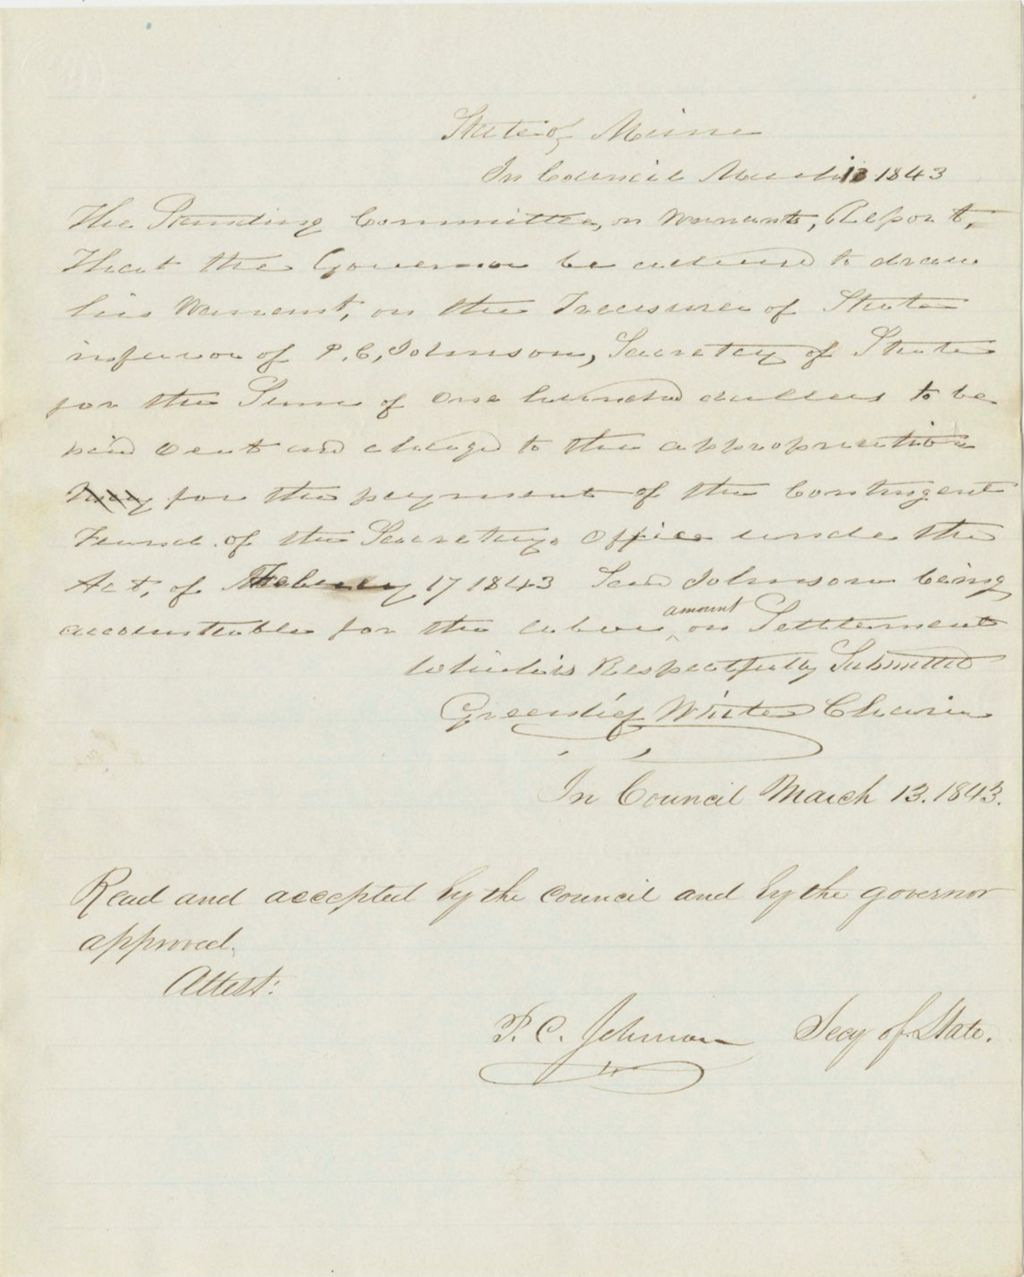 State of Maine
In Council March 13 1843
The Standing Committee, on Warrants, Report,
That the Governor be advised to draw
his Warrant, on the Treasurer of State
in favor of P. C. Johnson, Secretary of State
for the Sum of One hundred dollars to be
paid out and charged to the appropriation
for the payment of the Contingent
Fund of the Secretarys Office under the
Act, of February 17 1843 Said Johnson being
accountable for the above amount on Settlement
Which is Respectfully Submitted
Greenlief White Chairn
In Council March 13. 1843.
Read and accepted by the council and by the governor
approved.
Attest:
P. C. Johnson Secy of State.